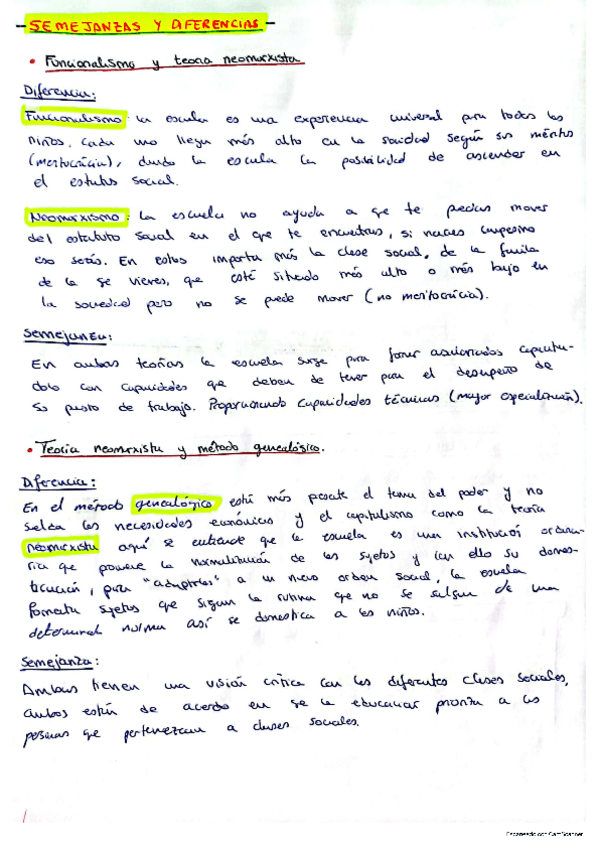 - SEMEJANZAS Y DIFERENCIAS -
• Funcionalismo y teoria neomarxista
Diferencia:
Funcionalismo: la escuela es una experiencia universal para todos los
niños, cada uno llega más alto en la sociedad según sus méritos
(meritocracia), dando la escuela la posibilidad de ascender en
el estatus social.
Neomarxismo: La escuela no ayuda a que te puedas mover
del estatuto social en el que te encuentras, si naces campesino
eso serás. En estos importa más la clase social, de la familia
de la que vienes, que esté situado más alto o más bajo en
la sociedad pero no se puede mover (no meritocracia).
Semejanza:
En ambas teorías la escuela surge para formar asalariados
con capacidades que deben de tener para el desempeño de
su puesto de trabajo. Proporcionando capacidades técnicas (mayor especialización).
• Teoria neomarxista y método genealógico.
Diferencia:
En el método genealógico está más presente el tema del poder y no
las necesidades económicas y el capitalismo como la teoría
neomarxista aquí se entiende que la escuela es una institución
que la normalización de los sujetos y con ello su domes-
ticación, para "adaptarlos" a un nuevo orden social, la escuela
fomenta sujetos que sigan la rutina que no se salgan de una
determinada norma así se domestica a los niños.
Semejanza:
Ambas tienen una visión crítica con las diferentes clases sociales,
ambos están de acuerdo en que la educación a las
personas que pertenezcan a clases sociales.
Escaneado con CamScanner